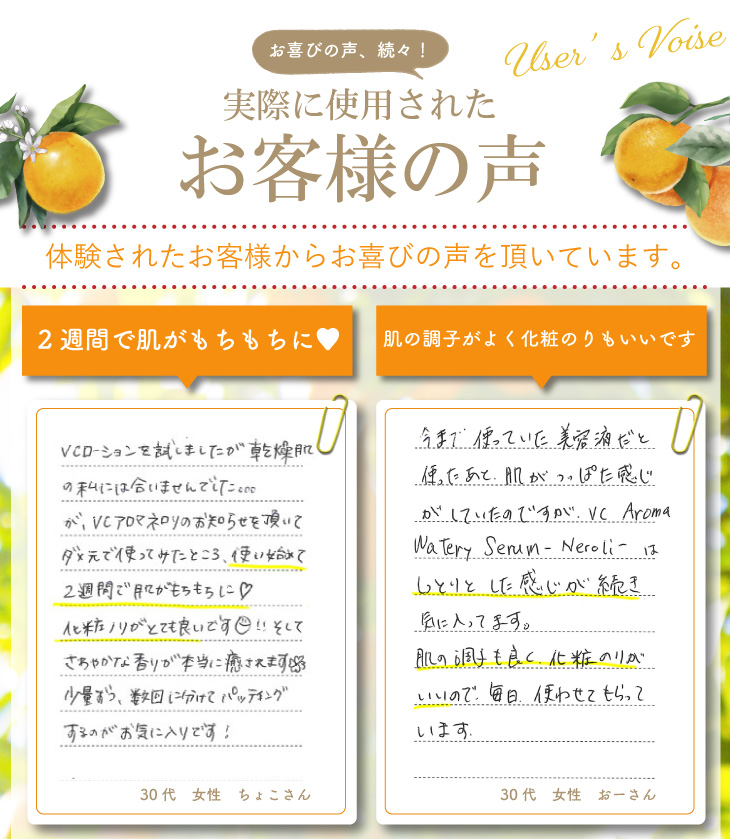 お喜びの声、続々！
User's Voise
実際に使用された
お客様の声
体験されたお客様からお喜びの声を頂いています。
2週間で肌がもちもちに♥
VCローションを試しましたが乾燥肌
の私には合いませんでした。。。
が、VCアロマネロリのお知らせを頂いて
ダメ元で使ってみたところ、使い始めて
2週間で肌がもちもちに♡
化粧ノリがとても良いです☺!! そして
さわやかな香りが本当に癒されます
少量ずつ、数回に分けてパッティング
するのがお気に入りです！
30代 女性 ちょこさん
肌の調子がよく化粧のりもいいです
今まで使っていた美容液だと
使ったあと、肌がつっぱた感じ
がしていたのですが、VC Aroma
Watery Serum-Neroli-は
しっとりとした感じが続き
気に入ってます。
肌の調子も良く、化粧のりが
いいので、毎日、使わせてもらって
います。
30代 女性 おーさん